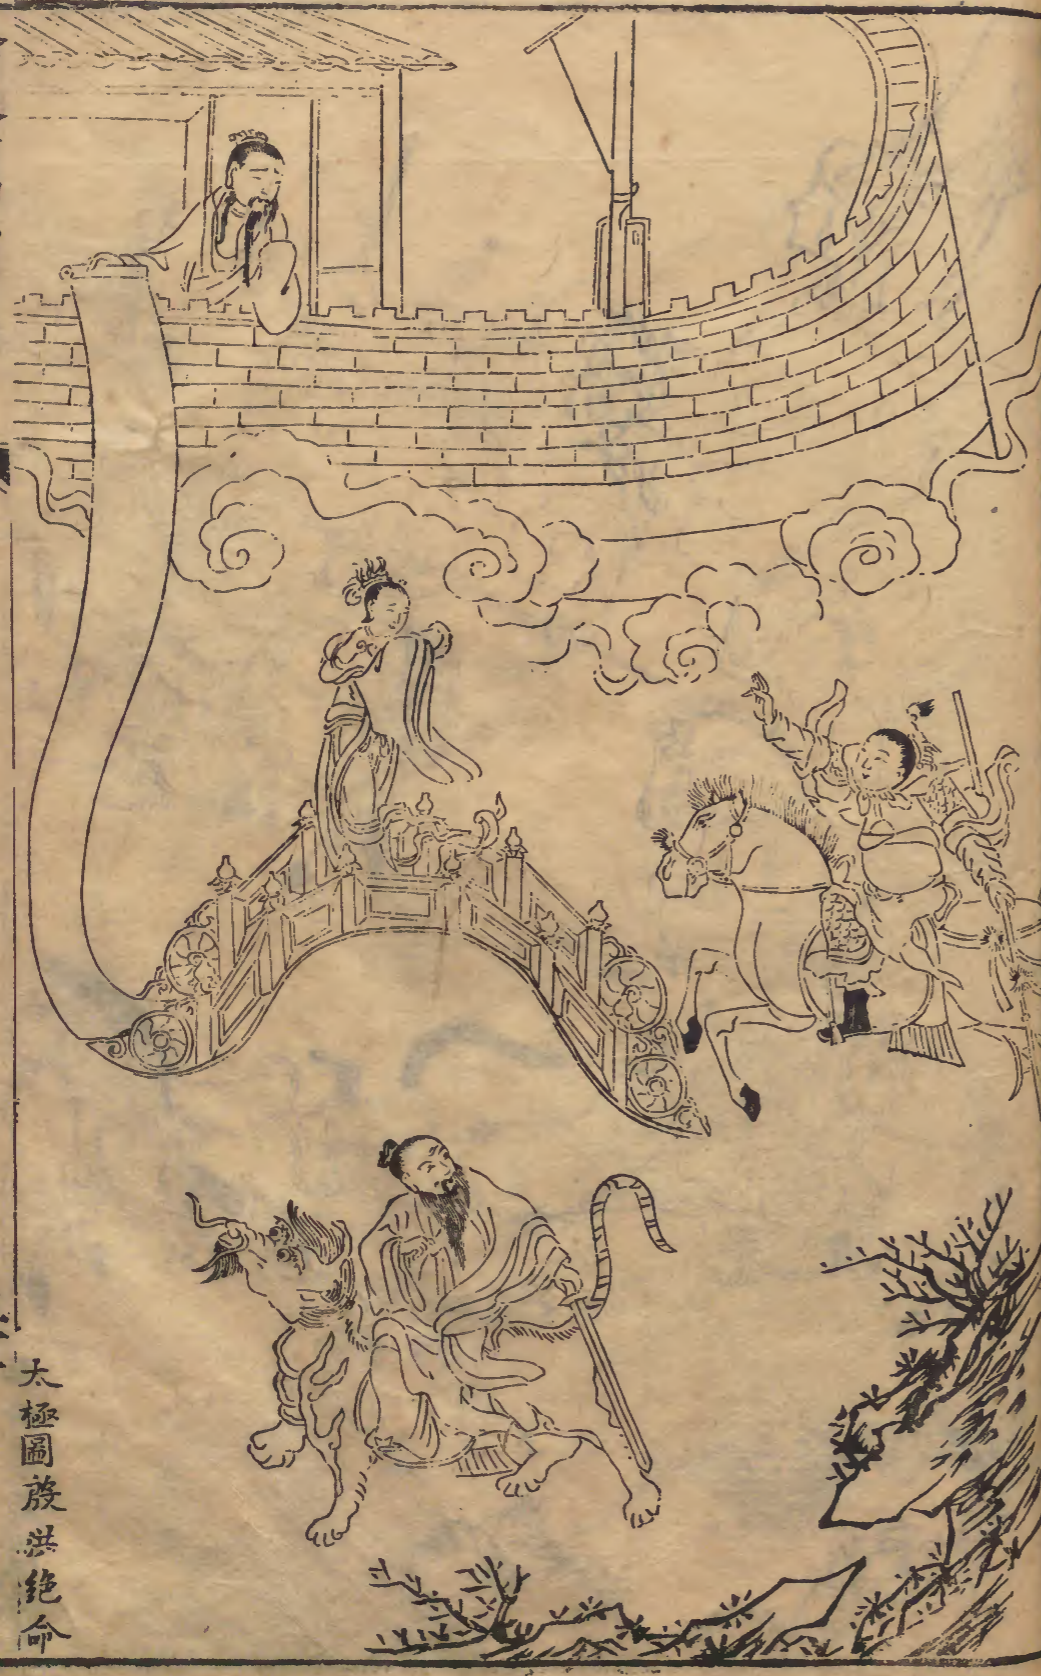 太極圖殷洪絕命